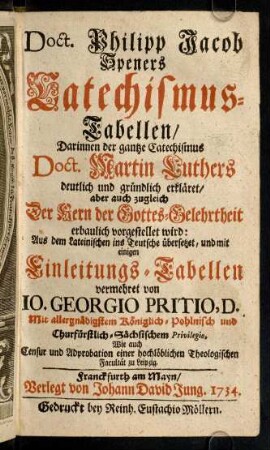 Doct. Philipp Jacob
Speners
Catechismus-
Tabellen/
Darinnen der gantze Catechismus
Doct. Martin Luthers
deutlich und gründlich erkläret/
aber auch zugleich
Der Kern der Gottes-Gelehrtheit
erbaulich vorgestellet wird:
Aus dem Lateinischen ins Teutsche übersetzet, und mit
einigen
Einleitungs-Tabellen
vermehret von
IO. GEORGIO PRITIO, D.
Mit allergnädigstem Königlich-Pohlnisch und
Churfürstlich-Sächsischem Privilegio,
Wie auch
Censur und Adprobation einer hochlöblichen Theologischen
Facultät zu Leipzig.
Franckfurth am Mayn/
Verlegt von Johann David Jung. 1734.
Gedruckt bey Reinh. Eustachio Möllern.